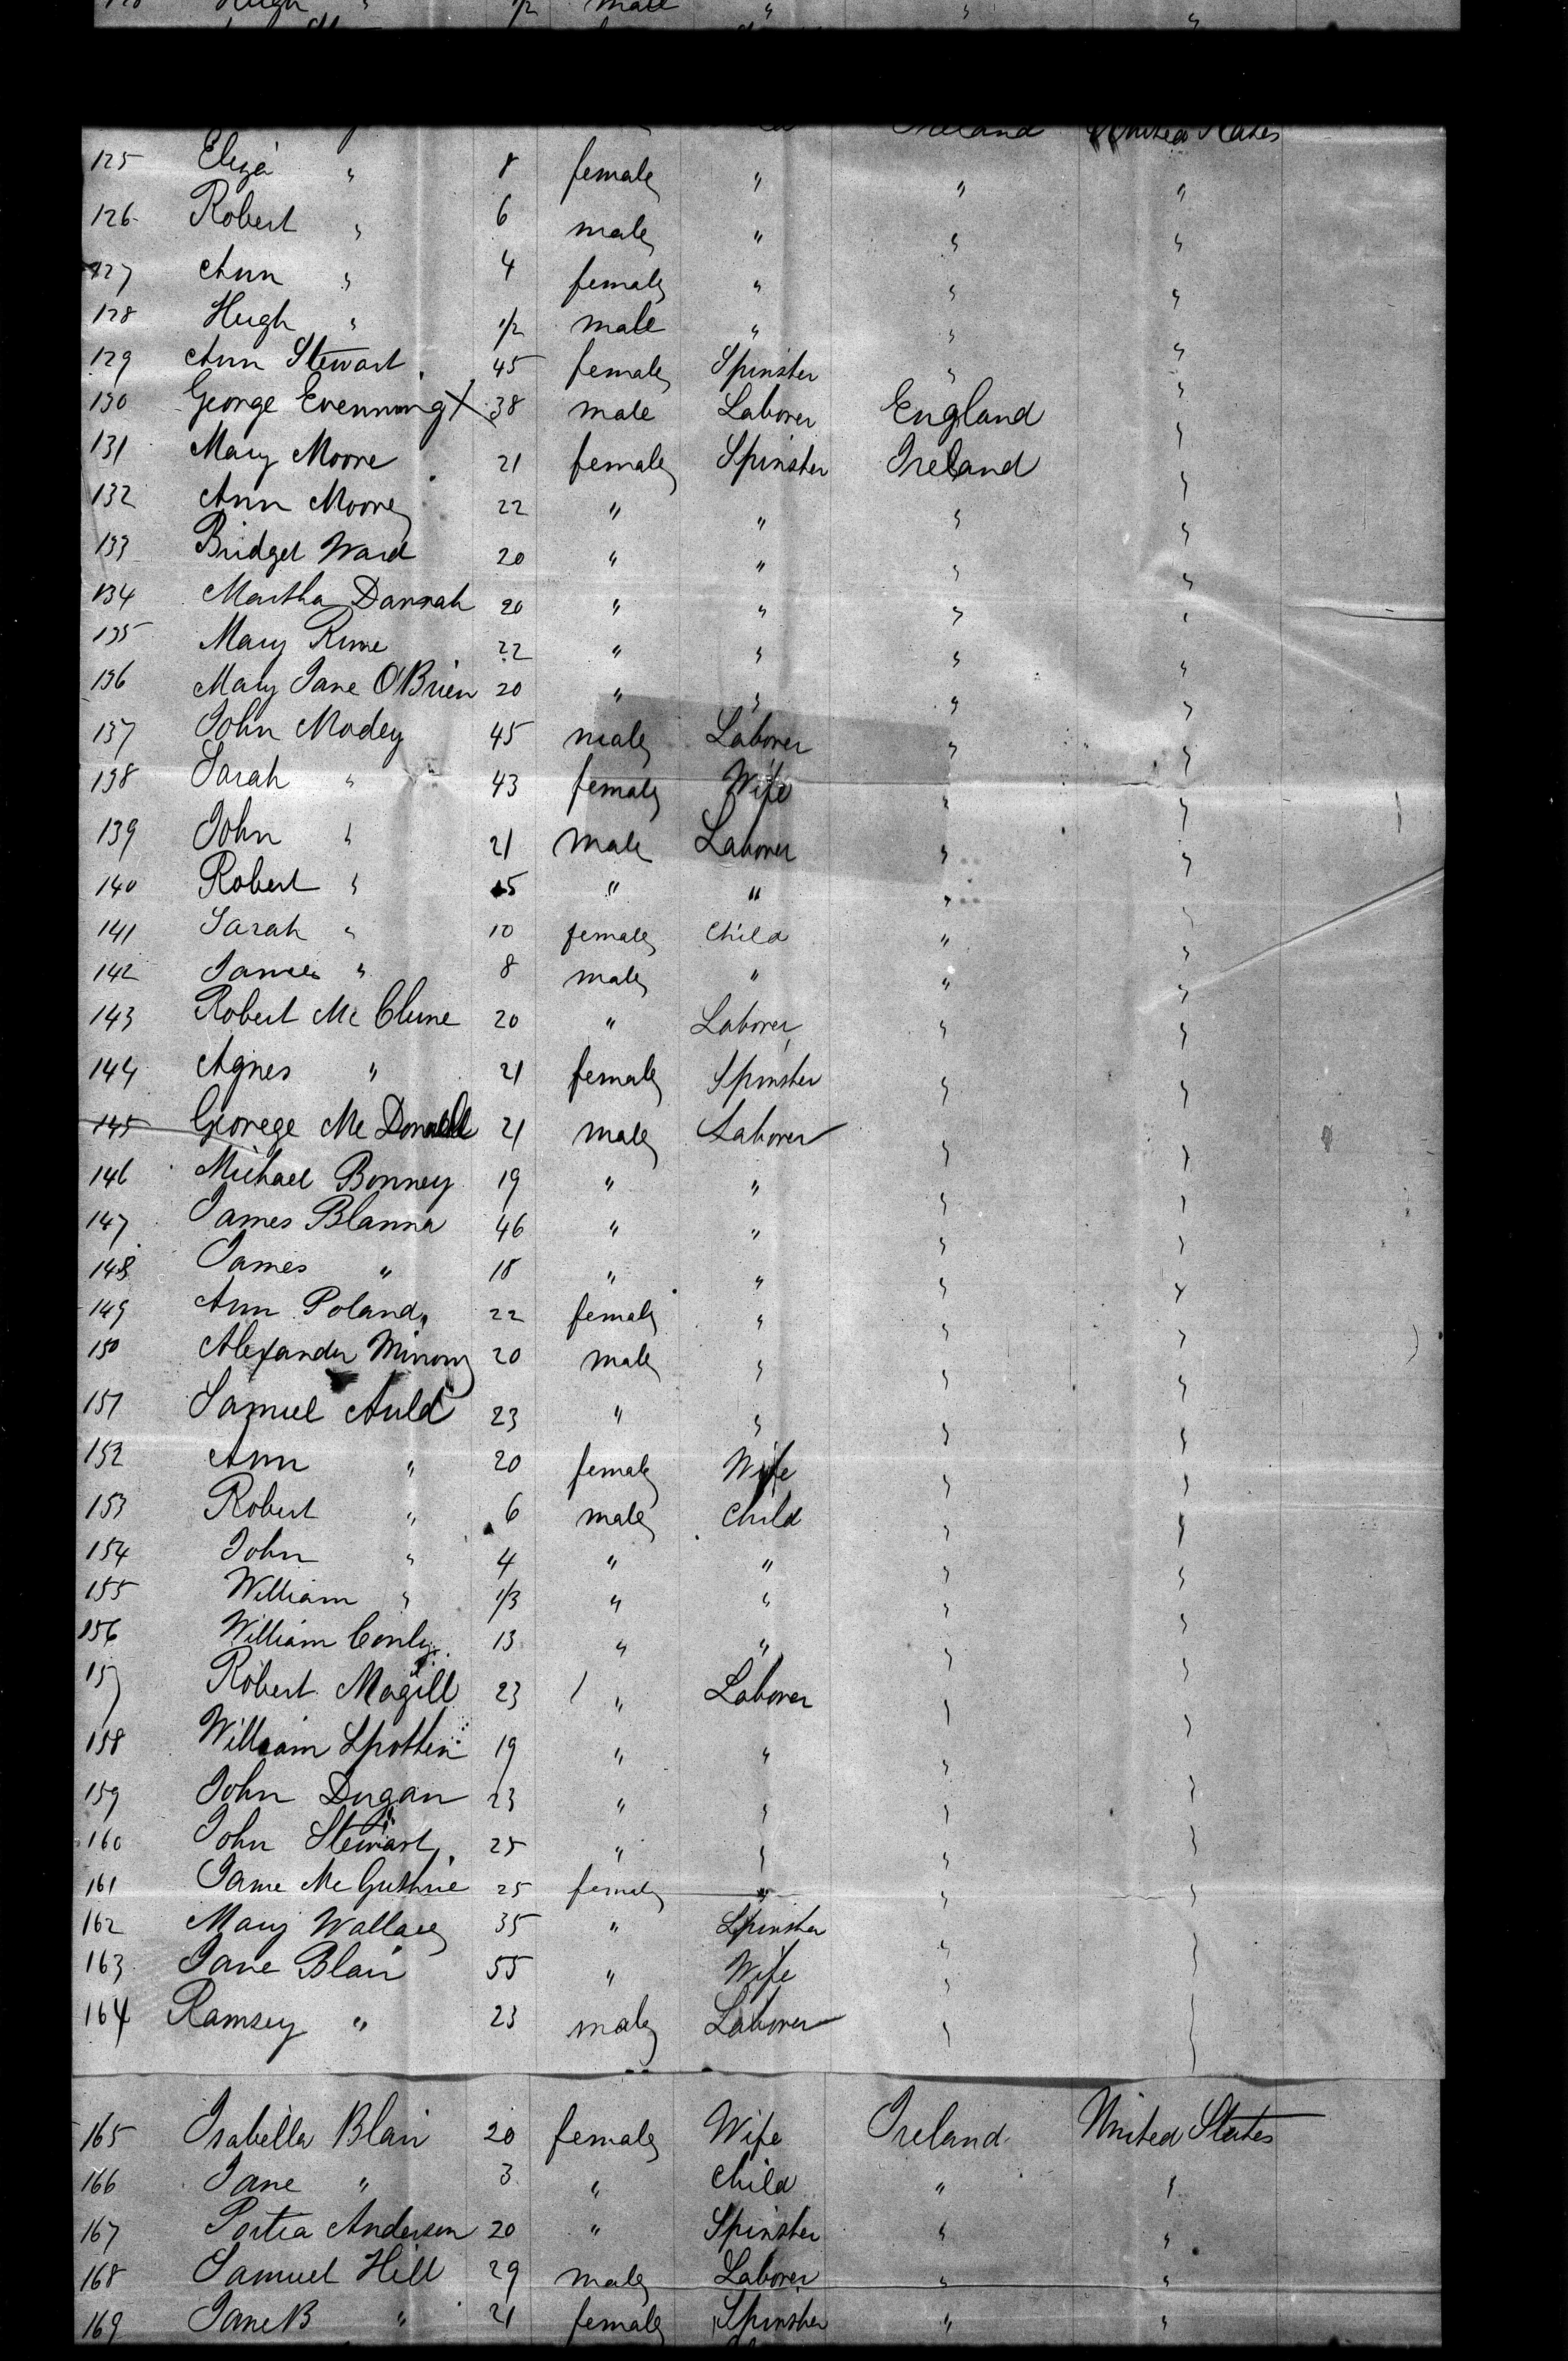 128 Hugh " 1/2 male " " "
Ireland United States
125 Eliza " 8 female " " "
126 Robert " 6 male " " "
127 Ann " 4 female " " "
128 Hugh " 1/2 male " " "
129 Ann Stewart 45 female Spinster " "
130 George Evenning X 38 male Laborer England "
131 Mary Moore 21 female Spinster Ireland "
132 Ann Moore 22 " " " "
133 Bridget Ward 20 " " " "
134 Martha Darrah 20 " " " "
135 Mary Rime 22 " " " "
136 Mary Jane O'Brien 20 " " " "
137 John Modey 45 male Laborer " "
138 Sarah " 43 female Wife " "
139 John " 21 male Laborer " "
140 Robert " 15 " " " "
141 Sarah " 10 female Child " "
142 James " 8 male " " "
143 Robert Mc Clune 20 " Laborer " "
144 Agnes " 21 female Spinster " "
145 Georege Mc Donald 21 male Laborer " "
146 Michael Bonney 19 " " " "
147 James Blanna 46 " " " "
148 James " 18 " " " "
149 Ann Poland 22 female " " "
150 Alexander 20 male " " "
151 Samuel Auld 23 " " " "
152 Ann " 20 female Wife " "
153 Robert " 6 male Child " "
154 John " 4 " " " "
155 William " 1/3 " " " "
156 William Conly 13 " " " "
157 Robert Magill 23 " Laborer " "
158 William Spotten 19 " " " "
159 John Dugan 23 " " " "
160 John Stewart 25 " " " "
161 Jame Mc Guthrie 25 female " " "
162 Mary Wallace 35 " Spinster " "
163 Jane Blair 55 " Wife " "
164 Ramsey " 23 male Laborer " "
165 Isabella Blair 20 female Wife Ireland United States
166 Jane " 3 " Child " "
167 Portia Anderson 20 " Spinster " "
168 Samuel Hill 29 male Laborer " "
169 Jane B " 21 female Spinster " "